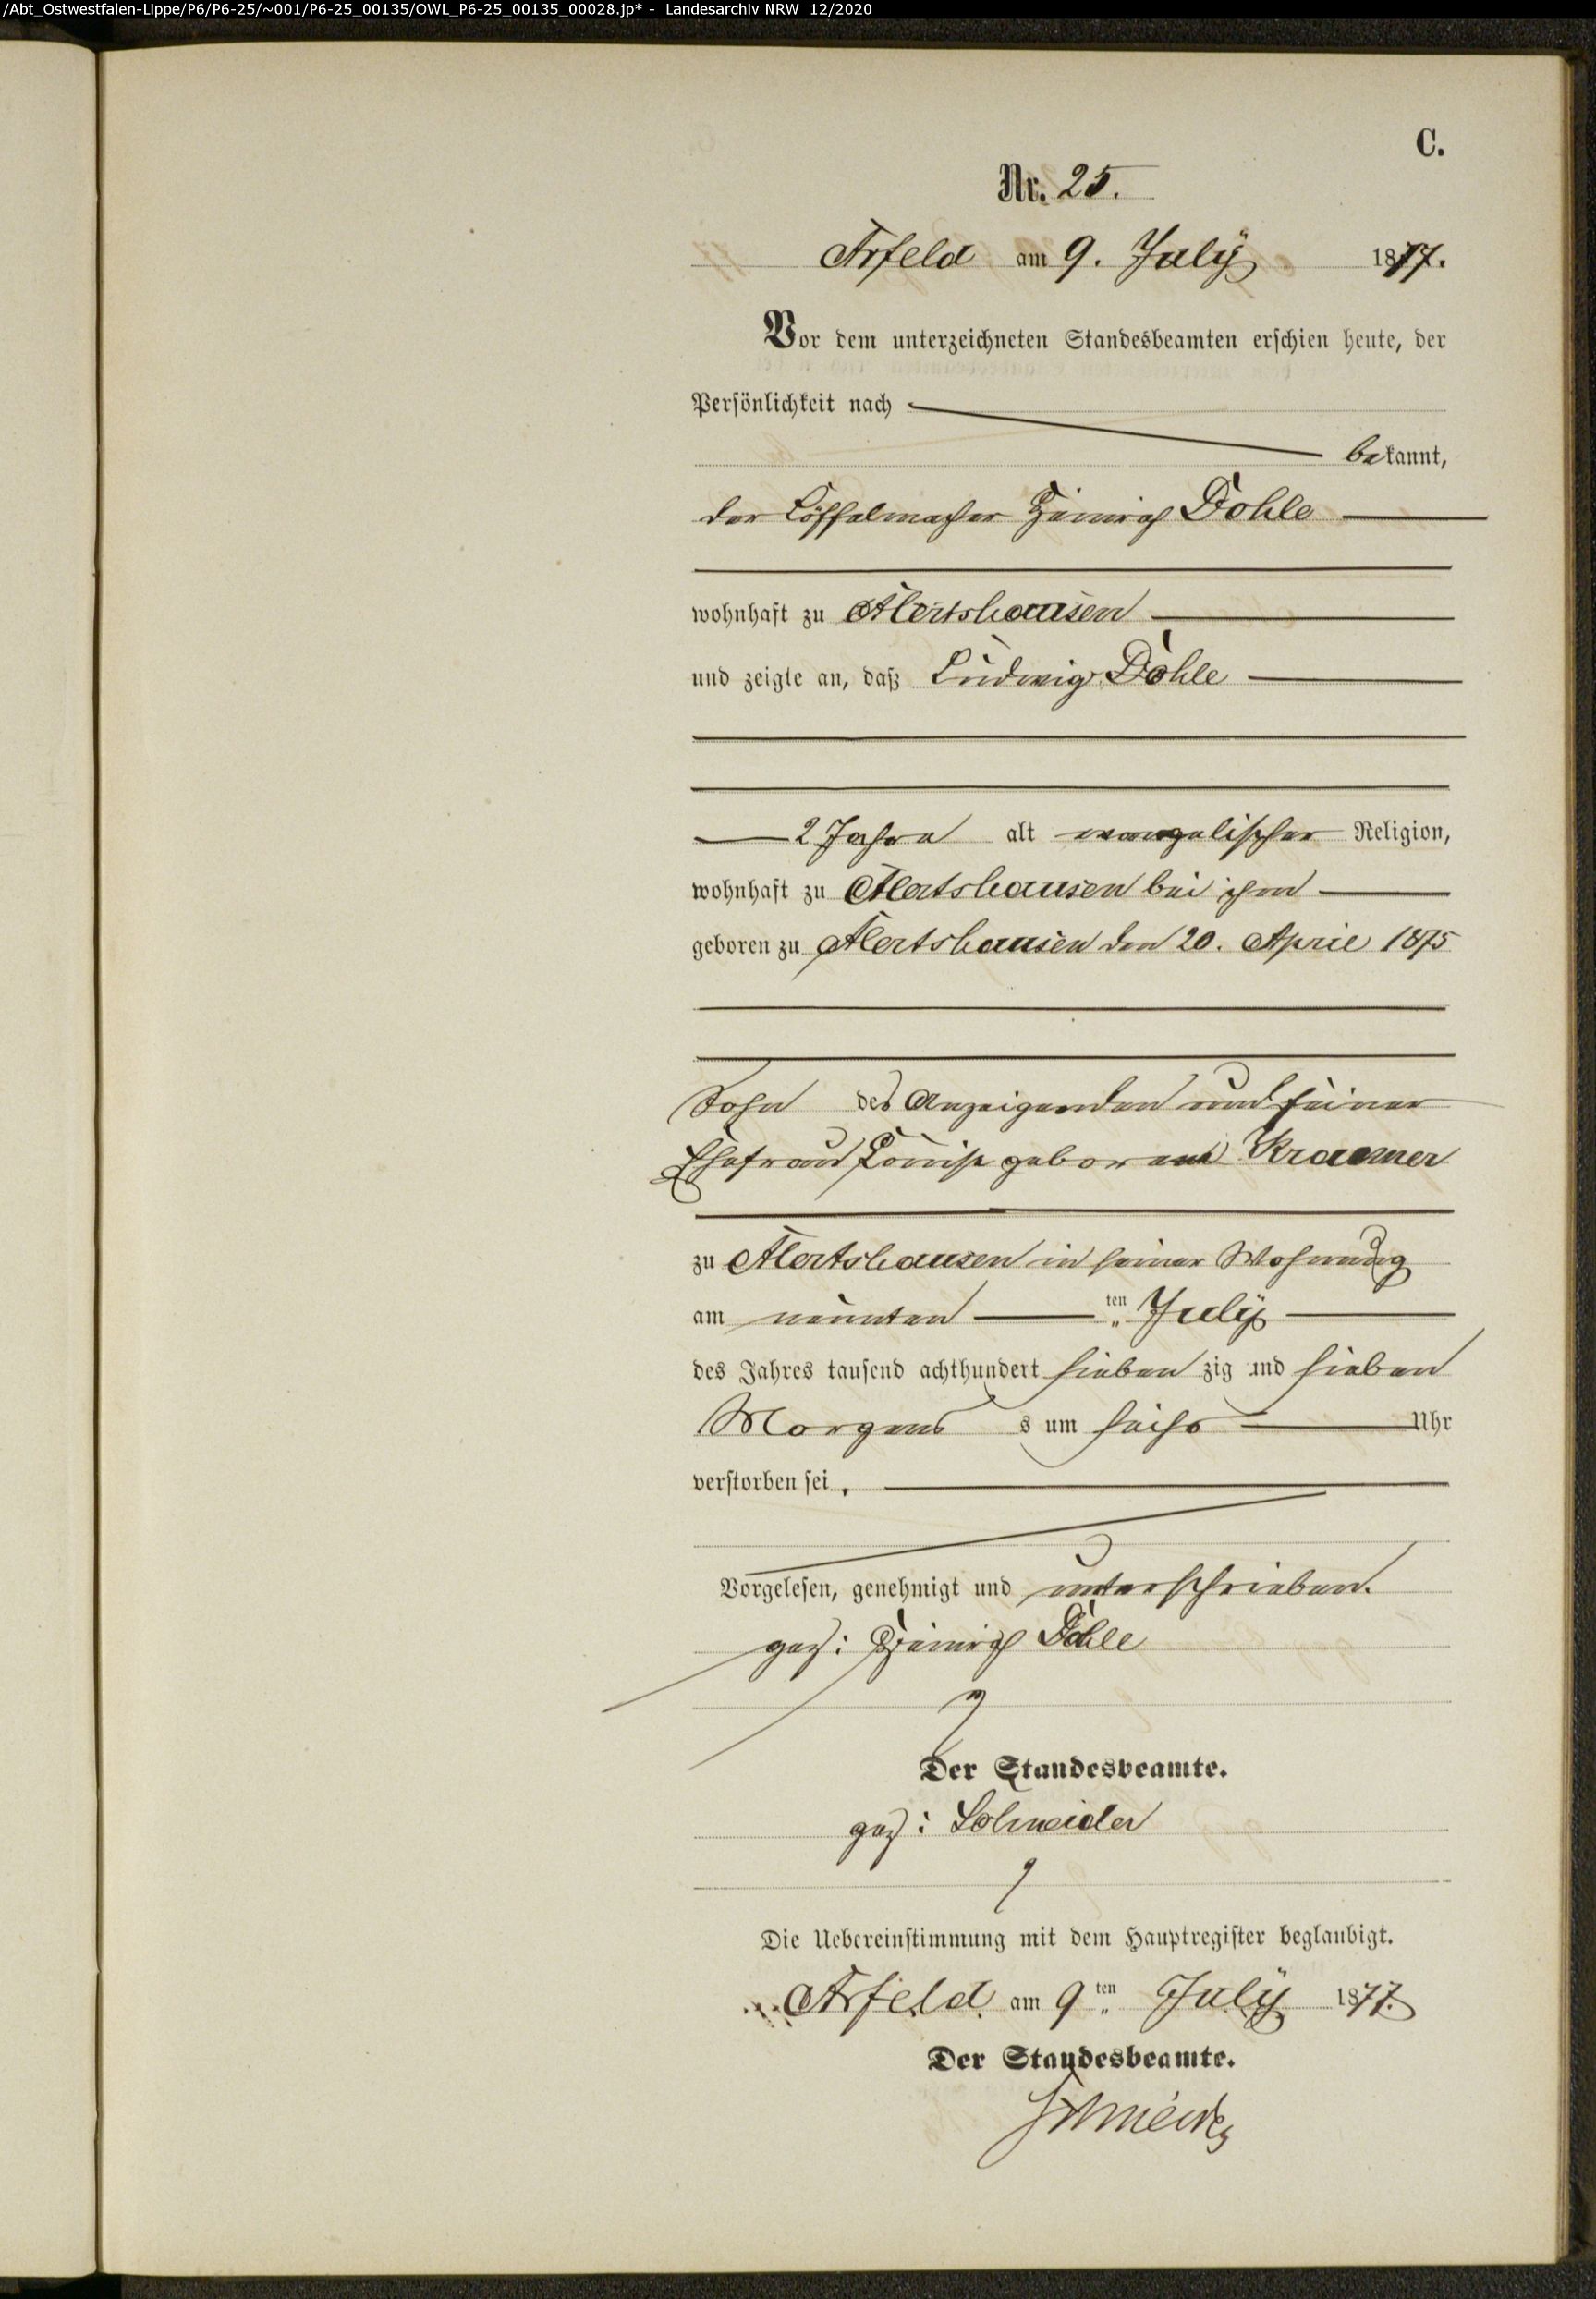 /Abt_Ostwestfalen-Lippe/P6/P6-25/~001/P6-25_00135/OWL_P6-25_00135_00028.jp* - Landesarchiv NRW 12/2020
C.
Nr. 25.
Arfeld am 9. July 1877.
Vor dem unterzeichneten Standesbeamten erschien heute, der
Persönlichkeit nach
bekannt,
der Löffelmacher Heinrich Dohle
wohnhaft zu Alertshausen
und zeigte an, daß Ludwig Dohle
2 Jahre alt evangelischer Religion,
wohnhaft zu Alertshausen bei ihm
geboren zu Alertshausen den 20. April 1875
Sohn des Anzeigenden und seiner
Ehefrau Louise geborene Kraemer
zu Alertshausen in seiner Wohnung
am neunten ten July
des Jahres tausend achthundert sieben zig und sieben
Morgens s um sechs Uhr
verstorben sei.
Vorgelesen, genehmigt und unterschrieben.
gez: Heinrich Dohle
Der Standesbeamte.
gez: Schneider
Die Uebereinstimmung mit dem Hauptregister beglaubigt.
Arfeld am 9ten July 1877.
Der Standesbeamte.
Schneider